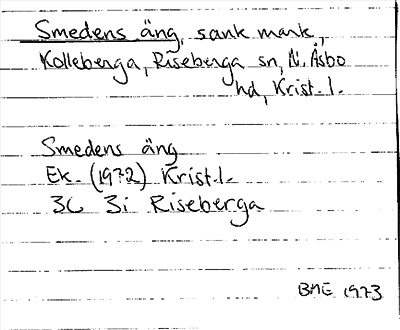 Smedens äng, sank mark,
Kolleberga, Riseberga sn, N. Åsbo
hd, Krist. l.
Smedens äng
Ek. (1972) Krist.l.
3C 3i Riseberga
BME 1973